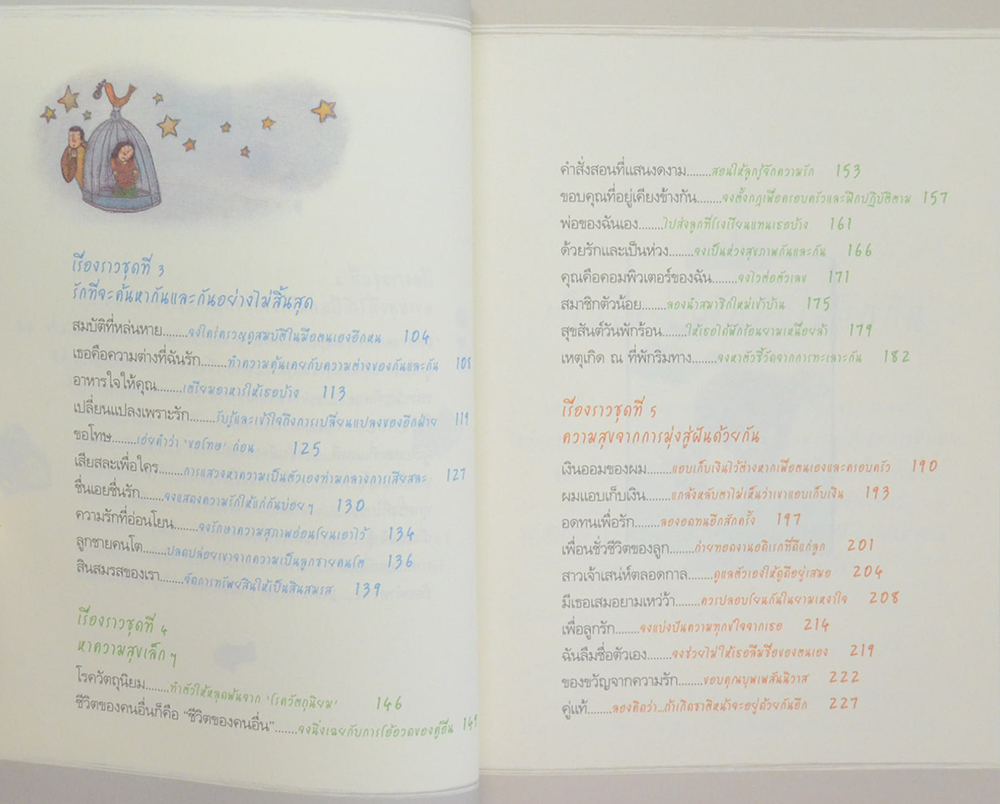 เรื่องราวชุดที่ 3
รักที่จะค้นหากันและกันอย่างไม่สิ้นสุด
สมบัติที่หล่นหาย........จงใคร่ครวญดูสมบัติในมือตนเองอีกหน 104
เธอคือความต่างที่ฉันรัก........ทำความคุ้นเคยกับความต่างของกันและกัน 108
อาหารใจให้คุณ........เตรียมอาหารให้เธอบ้าง 113
เปลี่ยนแปลงเพราะรัก........รับรู้และเข้าใจถึงการเปลี่ยนแปลงของอีกฝ่าย 119
ขอโทษ........เอ่ยคำว่า 'ขอโทษ' ก่อน 125
เสียสละเพื่อใคร........การแสวงหาความเป็นตัวเองท่ามกลางการเสียสละ 127
ชื่นเอยชื่นรัก........จงแสดงความรักให้แก่กันบ่อยๆ 130
ความรักที่อ่อนโยน........จงรักษาความสุภาพอ่อนโยนเอาไว้ 134
ลูกชายคนโต........ปลดปล่อยเขาจากความเป็นลูกชายคนโต 136
สินสมรสของเรา........จัดการทรัพย์สินให้เป็นสินสมรส 139
เรื่องราวชุดที่ 4
หาความสุขเล็กๆ
โรควัตถุนิยม........ทำตัวให้หลุดพ้นจาก 'โรควัตถุนิยม' 146
ชีวิตของคนอื่นก็คือ "ชีวิตของคนอื่น"........จงนิ่งเฉยกับการโอ้อวดของคู่อื่น 149
คำสั่งสอนที่แสนงดงาม........สอนให้ลูกรู้จักความรัก 153
ขอบคุณที่อยู่เคียงข้างกัน........จงตั้งกฎเพื่อครอบครัวและฝึกปฏิบัติตาม 157
พ่อของฉันเอง........ไปส่งลูกที่โรงเรียนแทนเธอบ้าง 161
ด้วยรักและเป็นห่วง........จงเป็นห่วงสุขภาพกันและกัน 166
คุณคือคอมพิวเตอร์ของฉัน........จงไวต่อตัวเลข 171
สมาชิกตัวน้อย........ลองนำสมาชิกใหม่เข้าบ้าน 175
สุขสันต์วันพักร้อน........ให้เธอได้พักร้อนยามเหนื่อยล้า 179
เหตุเกิด ณ ที่พักริมทาง........จงหาตัวชี้วัดจากการทะเลาะกัน 182
เรื่องราวชุดที่ 5
ความสุขจากการมุ่งสู่ฝันด้วยกัน
เงินออมของผม........แอบเก็บเงินไว้ต่างหากเพื่อตนเองและครอบครัว 190
ผมแอบเก็บเงิน........แกล้งหลับตาไม่เห็นว่าเขาแอบเก็บเงิน 193
อดทนเพื่อรัก........ลองอดทนอีกสักครั้ง 197
เพื่อนชั่วชีวิตของลูก........ถ่ายทอดงานอดิเรกที่ดีแก่ลูก 201
สาวเจ้าเสน่ห์ตลอดกาล........ดูแลตัวเองให้ดูดีอยู่เสมอ 204
มีเธอเสมอยามเหว่ว้า........ควรปลอบโยนกันในยามเหงาใจ 208
เพื่อลูกรัก........จงแบ่งปันความทุกข์ใจจากเธอ 214
ฉันลืมชื่อตัวเอง........จงช่วยไม่ให้เธอลืมชื่อของตนเอง 219
ของขวัญจากความรัก........ขอบคุณบุพเพสันนิวาส 222
คู่แท้........ลองคิดว่า...ถ้าเกิดชาติหน้าจะอยู่ด้วยกันอีก 227